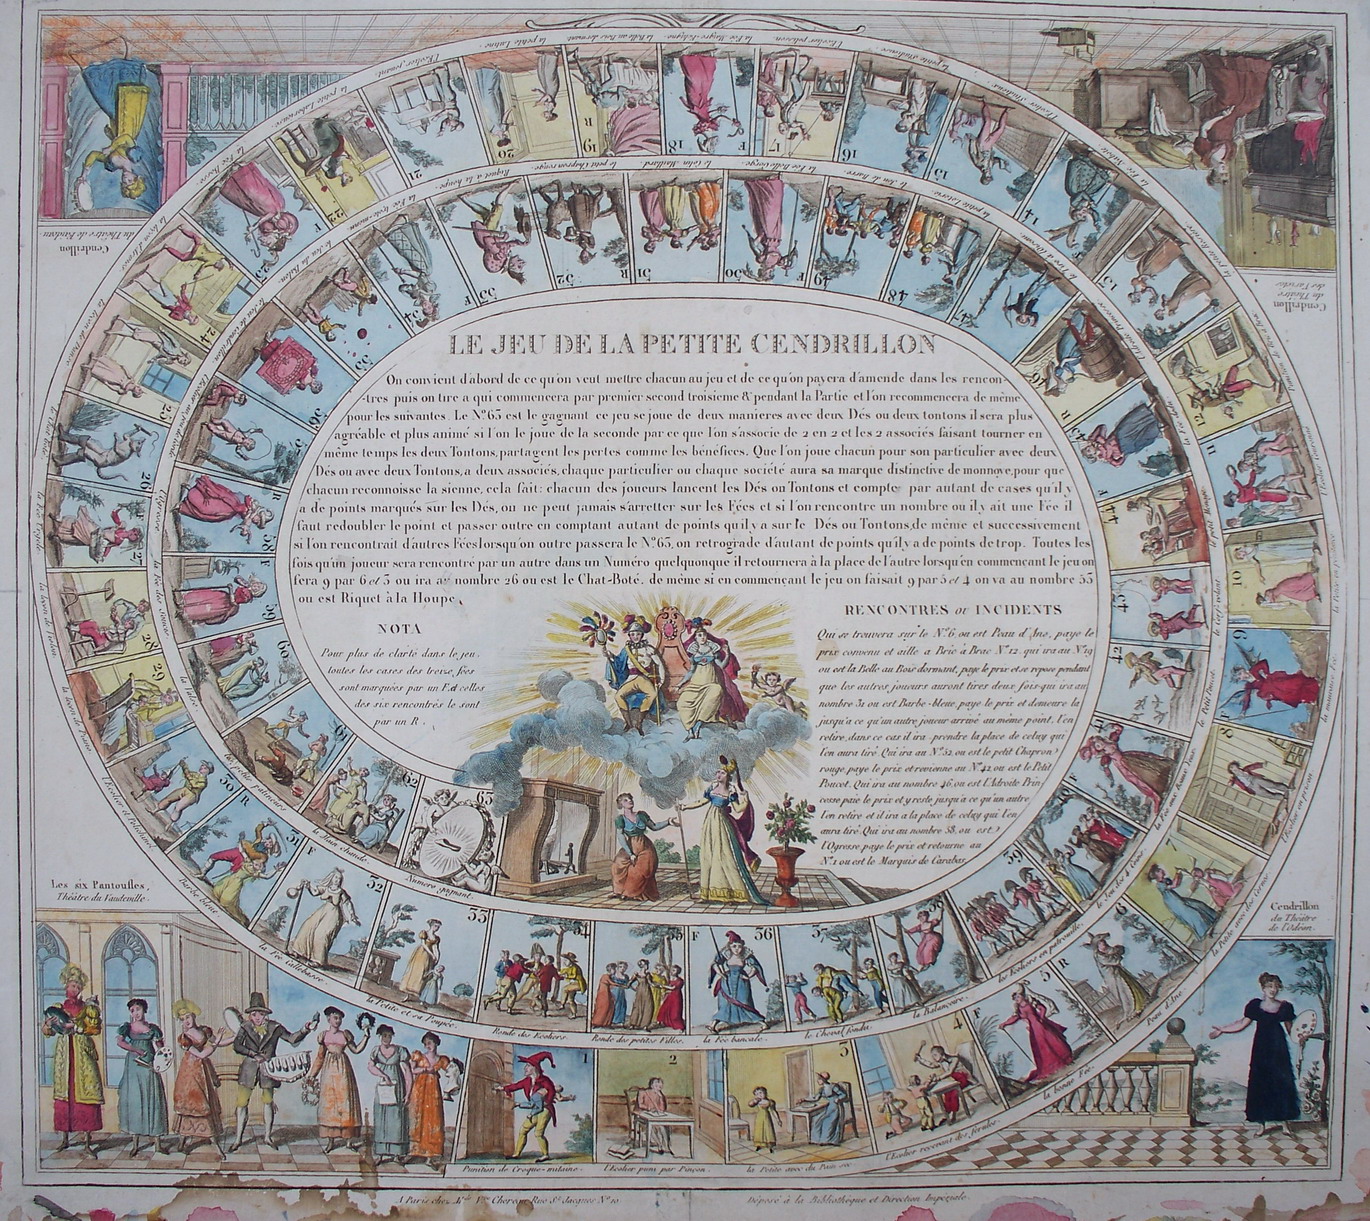 LE JEU DE LA PETITE CENDRILLON
On convient d'abord de ce qu'on veut mettre chacun au jeu et de ce qu'on payera d'amende dans les rencon-
-tres puis on tire a qui commencera par premier second troisieme & pendant la Partie et l'on recommencera de même
pour les suivantes. Le N.º 63 est le gagnant ce jeu se joue de deux manieres avec deux Dés ou deux tontons il sera plus
agréable et plus animé si l'on le joue de la seconde par ce que l'on s'associe de 2 en 2 et les 2 associés faisant tourner en
même temps les deux Tontons, partagent les pertes comme les bénéfices. Que l'on joue chacun pour son particulier avec deux
Dés ou avec deux Tontons, a deux associés, chaque particulier ou chaque société aura sa marque distinctive de monnoye, pour que
chacun reconnoisse la sienne, cela fait: chacun des joueurs lancent les Dés ou Tontons et compte par autant de cases qu'il y
a de points marqués sur les Dés, on ne peut jamais s'arretter sur les Fées et si l'on rencontre un nombre ou il y ait une Fée il
faut redoubler le point et passer outre en comptant autant de points qu'il y a sur le Dés ou Tontons, de même et successivement
si l'on rencontrait d'autres Fées lorsqu'on outre passera le N.º 63, on retrograde d'autant de points qu'il y a de points de trop. Toutes les
fois qu'un joueur sera rencontré par un autre dans un Numéro quelquonque il retournera à la place de l'autre lorsqu'en commencant le jeu on
fera 9 par 6 et 3 on ira au nombre 26 ou est le Chat-Boté. de même si en commencant le jeu on faisait 9 par 5 et 4 on va au nombre 53
ou est Riquet à la Houpe.
NOTA
Pour plus de clarté dans le jeu,
toutes les cases des treize fées
sont marquées par un F. et celles
des six rencontres le sont
par un R.
RENCONTRES ou INCIDENTS
Qui se trouvera sur le N.º 6 ou est Peau d'Ane, paye le
prix convenu et aille a Bric à Brac N.º 12. qui ira au N.º 19
ou est la Belle au Bois dormant, paye le prix et se repose pendant
que les autres joueurs auront tirés deux fois qui ira au
nombre 31 ou est Barbe-bleue, paye le prix et demeure la
jusqu'a ce qu'un autre joueur arrivé au même point, l'en
retire, dans ce cas il ira prendre la place de celuy qui
l'en aura tiré. Qui ira au N.º 52 ou est le petit Chapron
rouge paye le prix et revienne au N.º 42 ou est le Petit
Poucet. Qui ira au nombre 46, ou est l'Adroite Prin
cesse paie le prix et y reste jusqu'a ce qu'un autre
l'en retire et il ira a la place de celuy qui l'en
aura tiré. Qui ira au nombre 58, ou est
l'Ogresse paye le prix et retourne au
N.º 1 ou est le Marquis de Carabas.
Cendrillon
du Théâtre de Pandou
Cendrillon
du Théâtre
des Varietés
Les six Pantoufles,
Théâtre du Vaudeville.
Cendrillon
du Théatre
de l'Odéon.
1
Punition de Croque-mitaine.
2
l'Ecolier puni par Pinçon.
3
la Petite avec du Pain sec.
4
l'Ecolier recevant des férules.
5 F
la bonne Fée.
6 R
Peau d'Ane.
7
8
9 F
10
11
12
13
14
15
16
17 F
18 F
19 R
la Belle au Bois dormant.
20
21
22
23 F
24
25
26
27
28
29
30
l'Ecolier et Polichinel.
31 R
Barbe bleue.
32 F
la Fée Calebasse.
33
la Petite et sa Poupée.
34
Ronde des Ecoliers.
35
Ronde des petites Filles.
36 F
la Fée bancale.
37
le Cheval fondu.
38
la Balançoire.
39
les Ecoliers en patrouille.
40
le Jeu des 4 Coins.
41 F
42
le Petit Poucet.
43
le Cerf-volant.
44
45
46 R
47
48
49
50 F
51
le Colin Maillard.
52 R
le petit Chapron rouge.
53
Riquet a la houpe.
54 F
55
56
57
58 R
l'Ogresse.
59
60
61
62
la Main chaude.
63
Numéro gagnant.
A Paris chez M.me V.ve Chereau Rue S.t Jacques N.º 10
Déposé à la Bibliothèque et Direction Impériale.